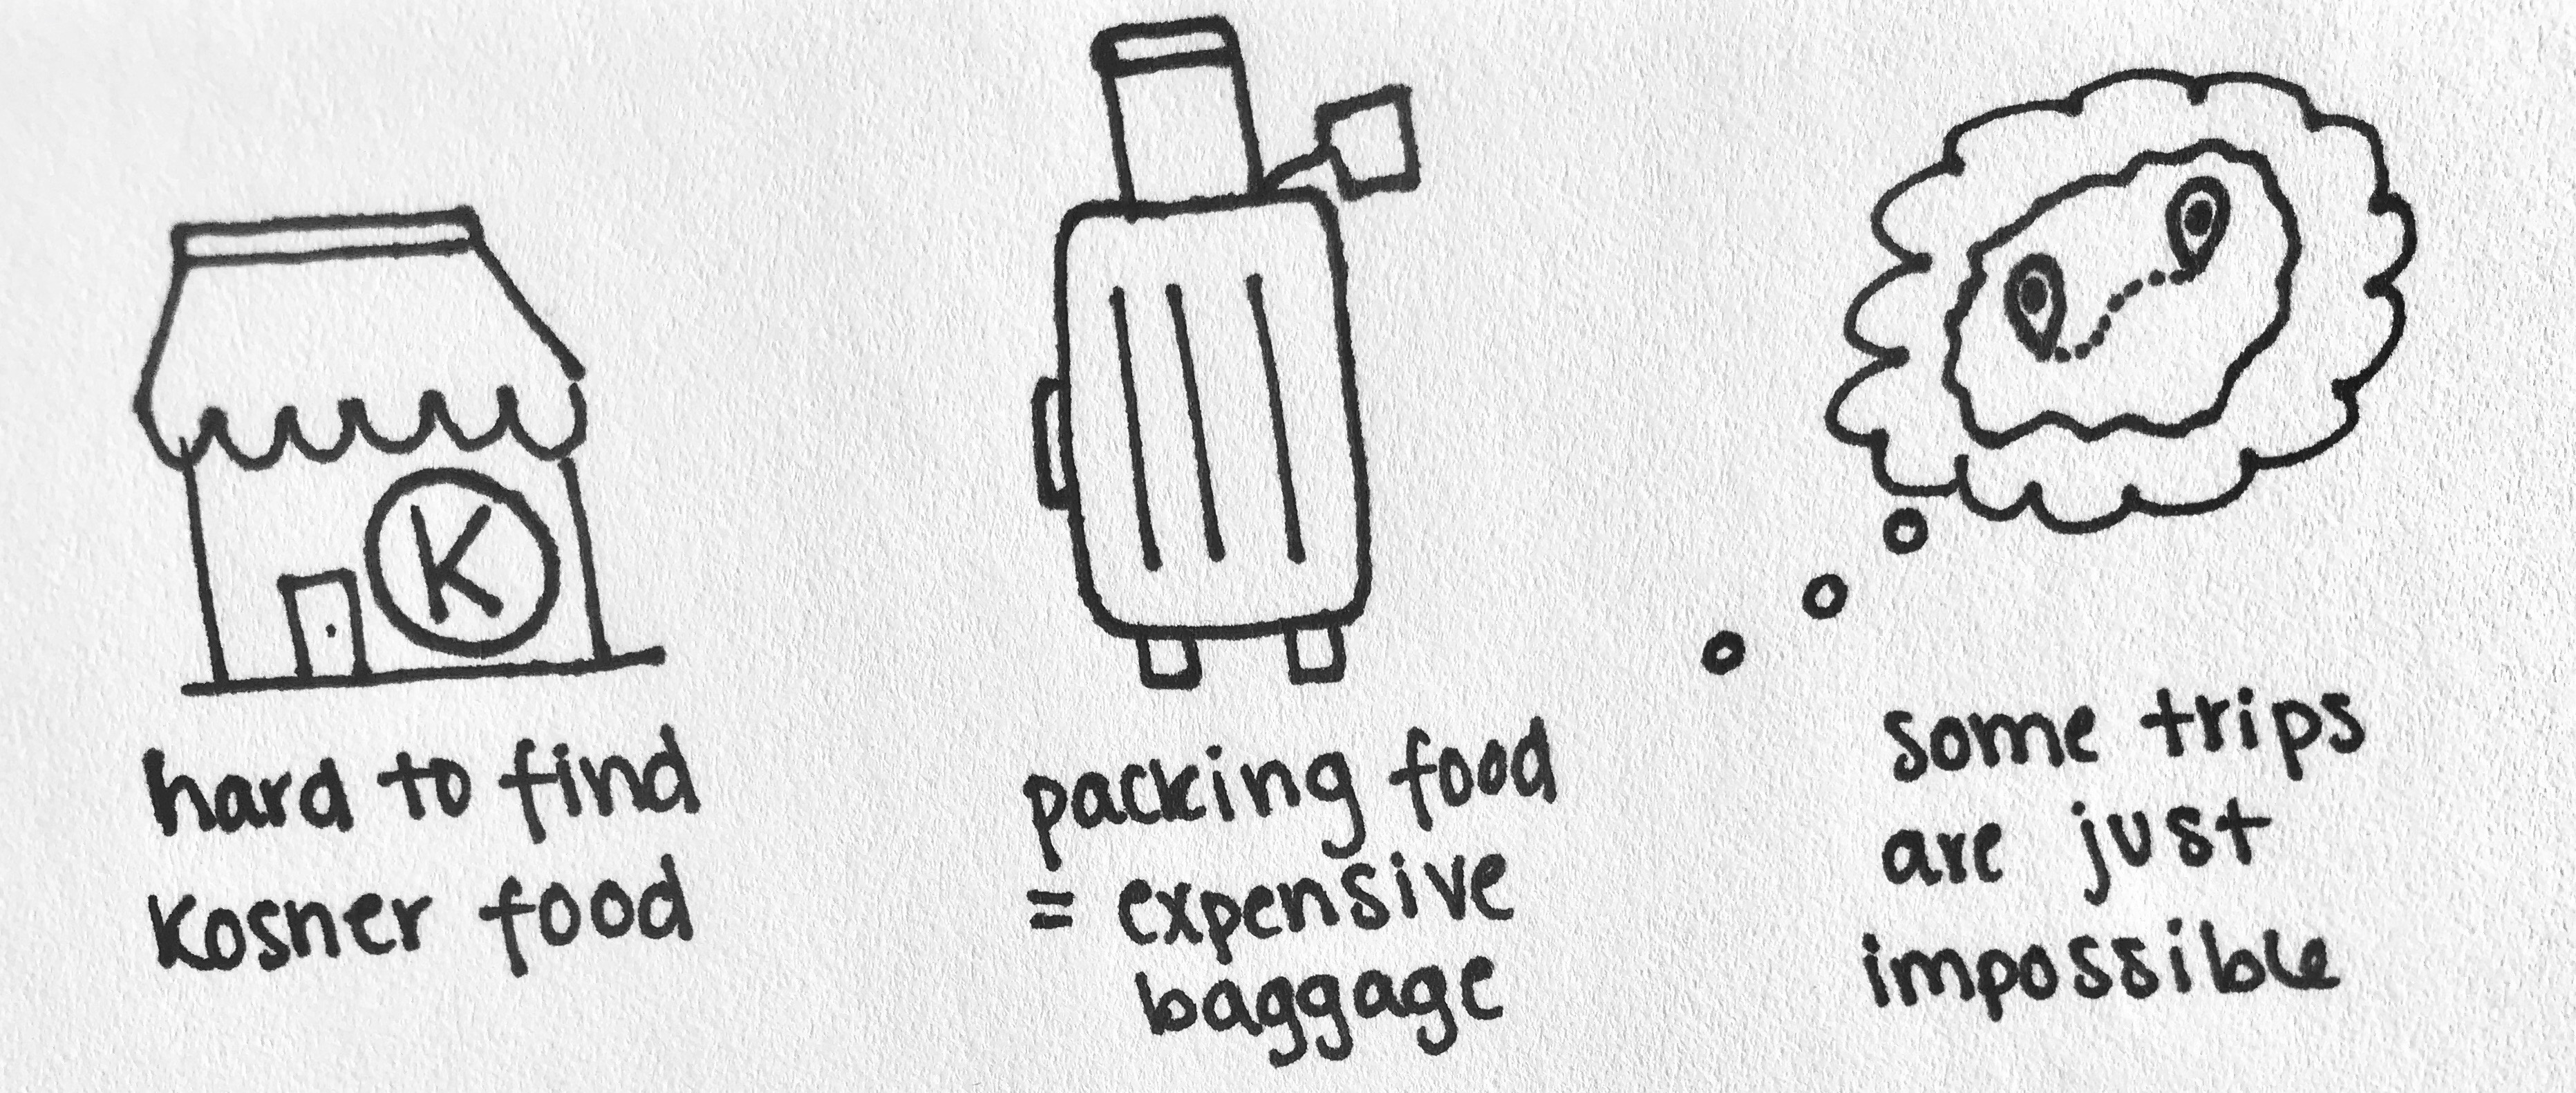 K
hard to find
kosher food
packing food
= expensive
baggage
some trips
are just
impossible